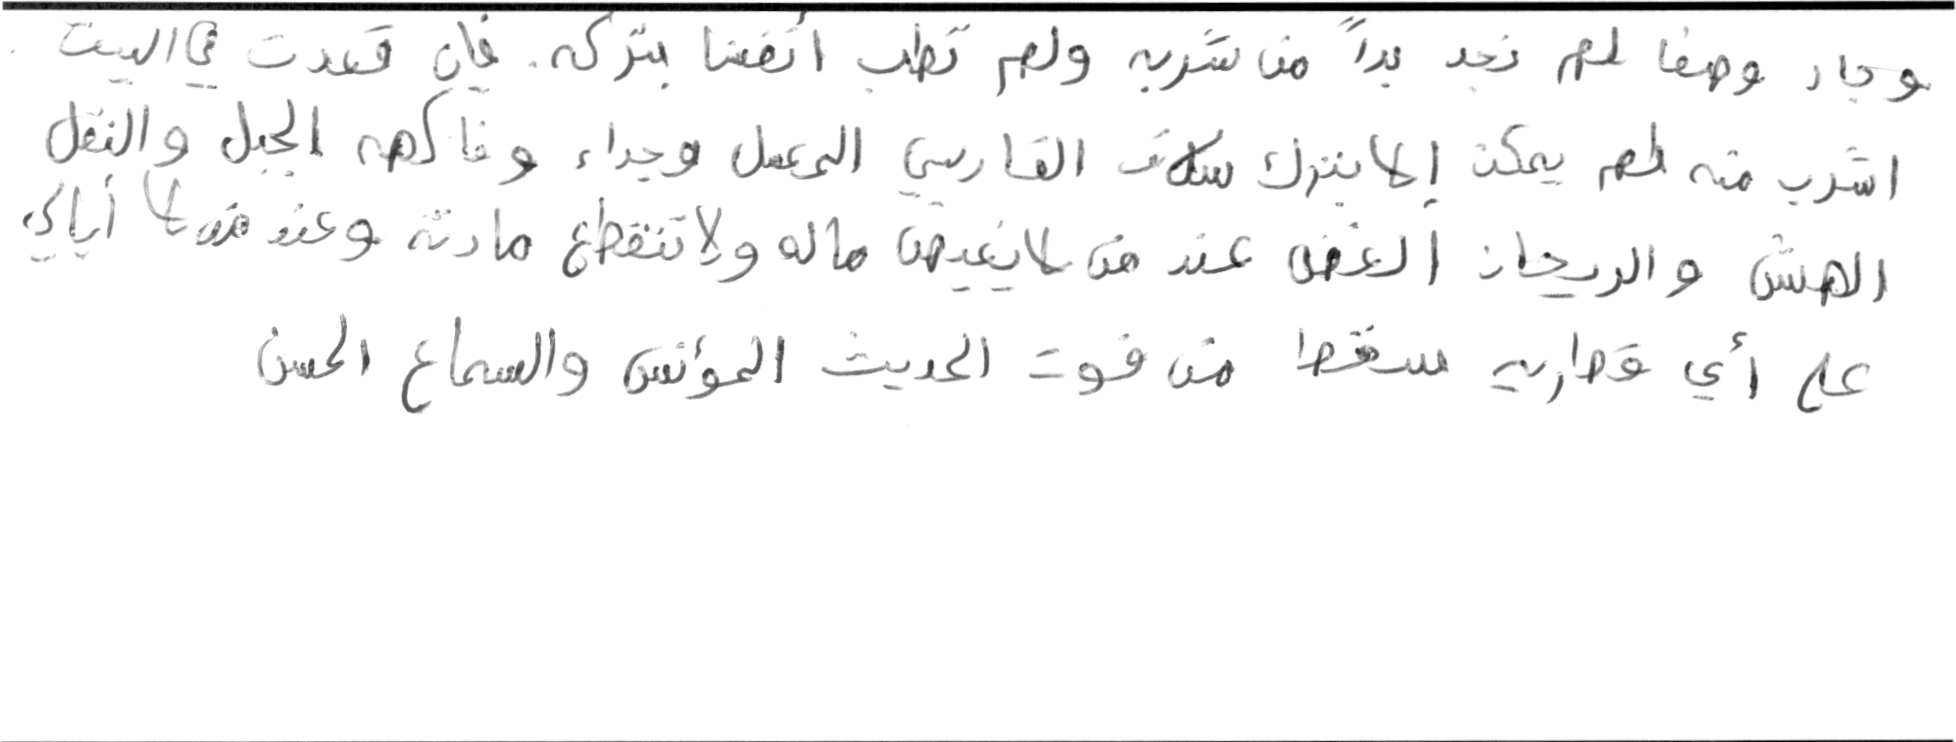 وجاد وصفا لم نجد بداً من شربه ولم تطب أنفسنا بتركه. فإن قعدت في البيت
اشرب منه لم يمكن إلا بترك الفارسي المعسل وجداء وفاكهه الجبل والنقل
الهش والريحان الغض عند من لا يغيض ماله ولا تنقطع مادته وعند من لا أبالي
على أي سقط من فوت الحديث المؤنس والسماع الحسن